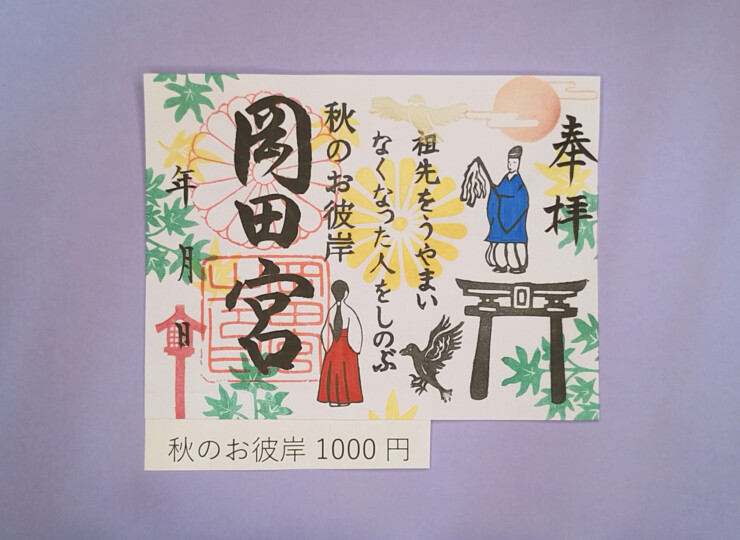 奉拝
祖先をうやまい
なくなった人をしのぶ
秋のお彼岸
岡田宮
年月日
秋のお彼岸 1000 円